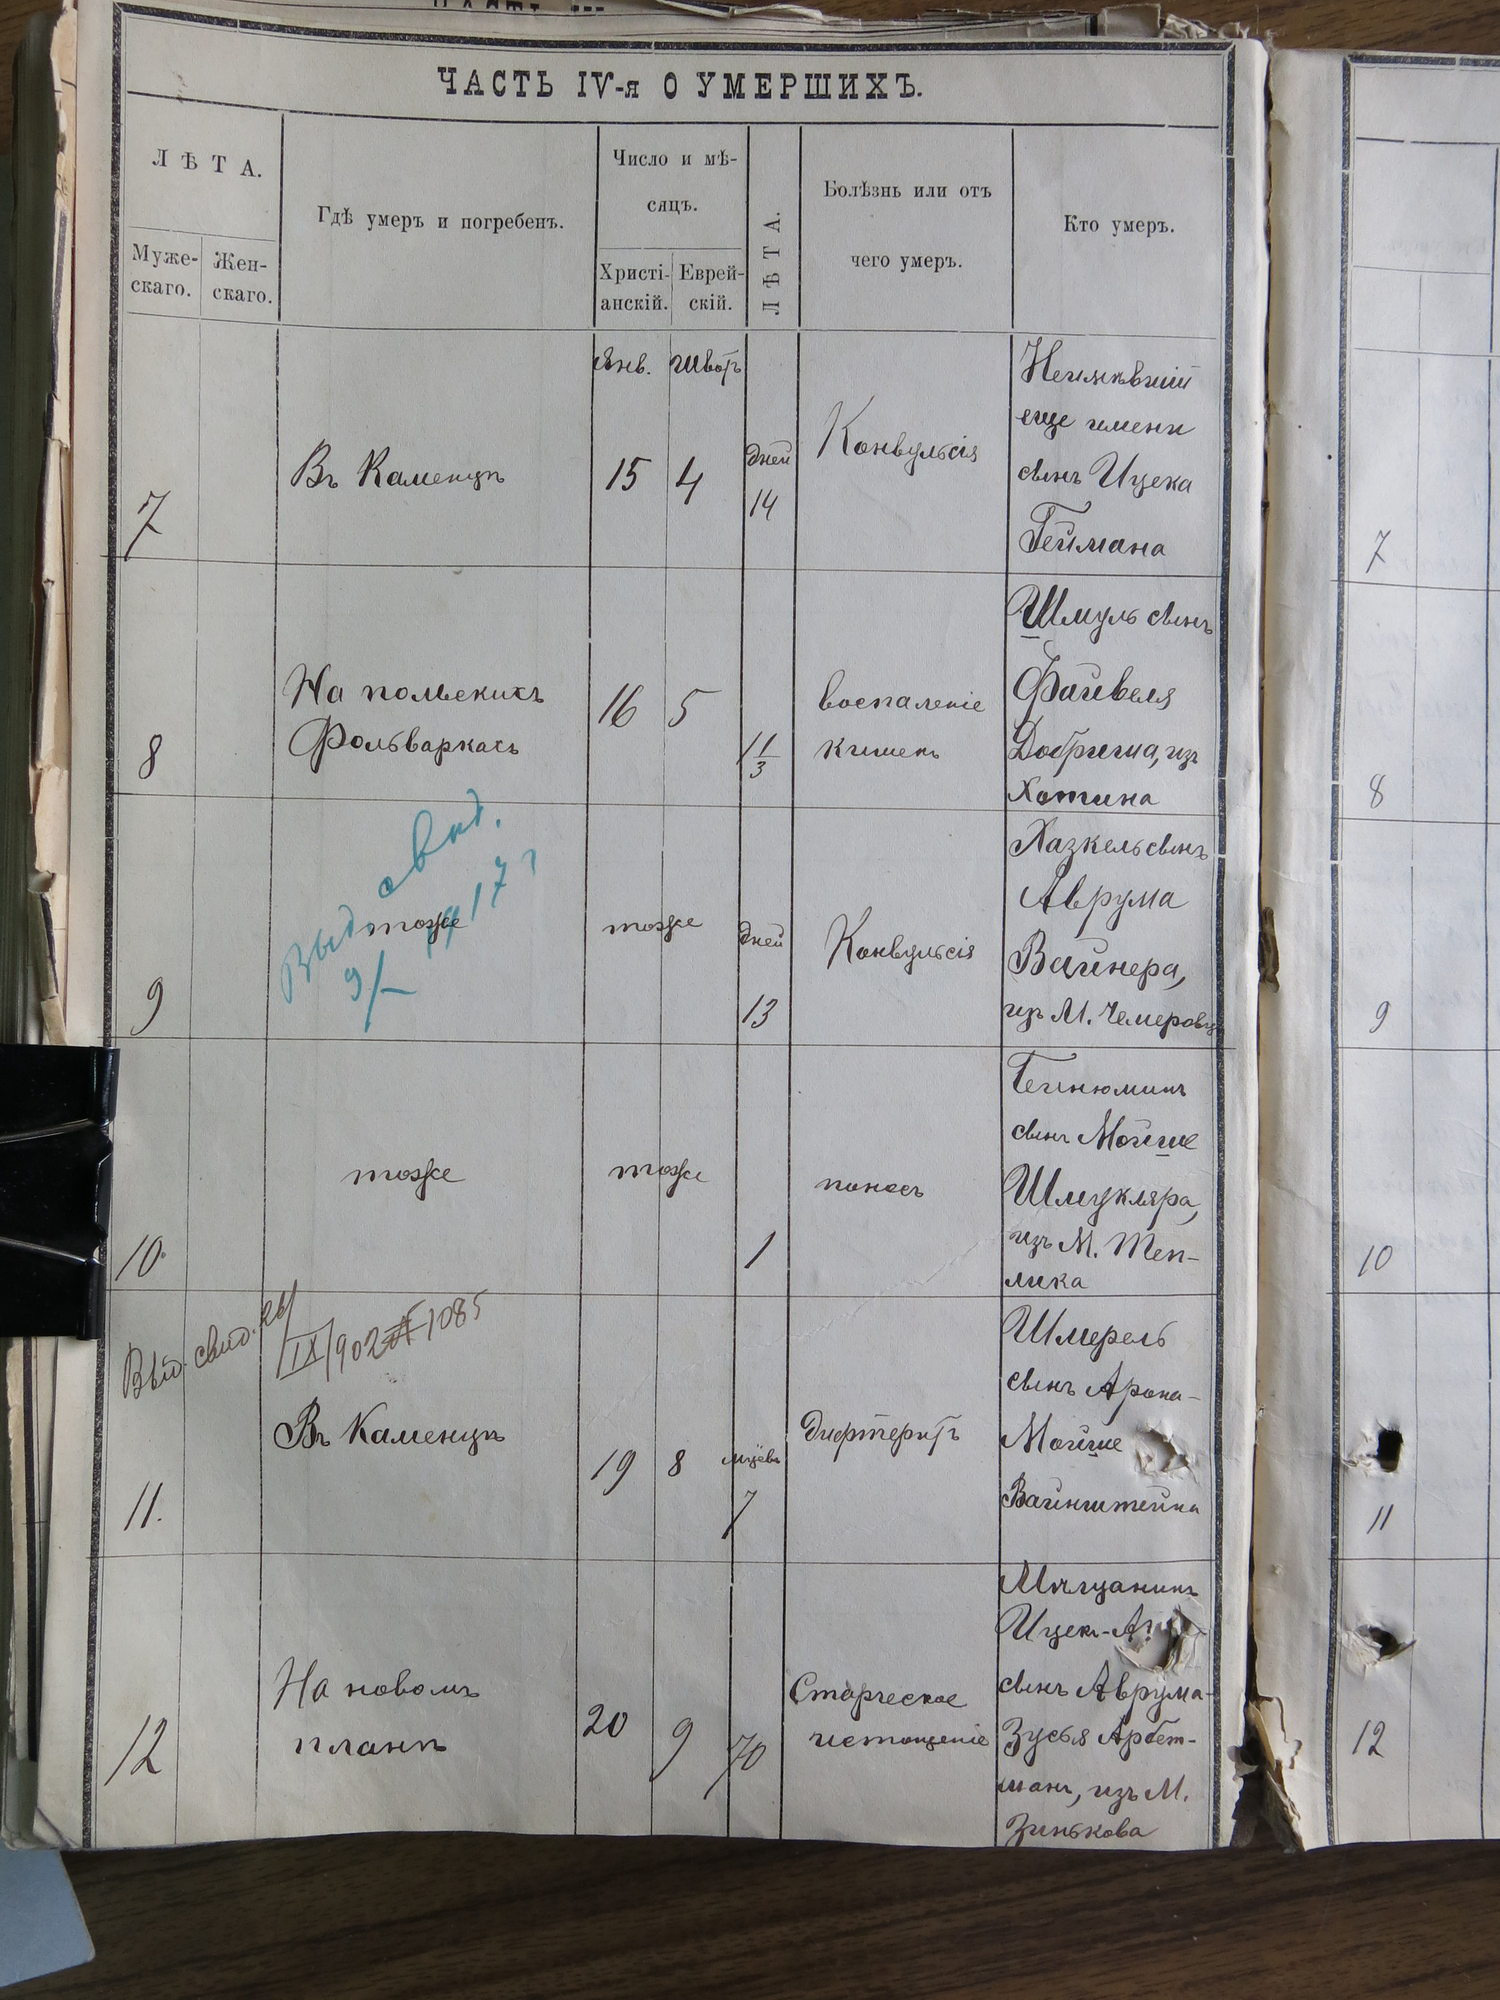 ЧАСТЬ IV-я О УМЕРШИХЪ.
ЛѢТА.
Муже-
скаго.
Жен-
скаго.
Гдѣ умеръ и погребенъ.
Число и мѣ-
сяцъ.
Христі-
анскій.
Еврей-
скій.
ЛѢТА.
Болѣзнь или отъ
чего умеръ.
Кто умеръ.
7
Въ Каменцѣ
Янв.
15
Шватъ
4
дней
14
Конвульсія
Неимѣвшій
еще имени
сынъ Ицека
Геймана
7
8
На польскихъ
Фольваркахъ
16
5
1 1/3
воспаленіе
кишекъ
Шмуль сынъ
Файвеля
Добриша, изъ
Хотина
8
9
Выдано свид.
9/ 1917 г
тоже
тоже
дней
13
Конвульсія
Хазкель сынъ
Аврума
Вайнера,
изъ М. Чемеровц
9
10.
тоже
тоже
1
поносъ
сынъ Мойше
Шмукляра,
изъ М. Теп-
лика
10
Выд. свид.
IX/902 № 1085
11.
Въ Каменцѣ
19
8
мѣсев
7
Дифтеритъ
Шмерель
сынъ Арона-
Мойше
Вайнштейна
11
12
На новомъ
планѣ
20
9
70
Старческое
истощеніе
Мѣщанинъ
Ицек-
сынъ Аврума-
Зусья Арбет-
манъ, изъ М.
Зинькова
12